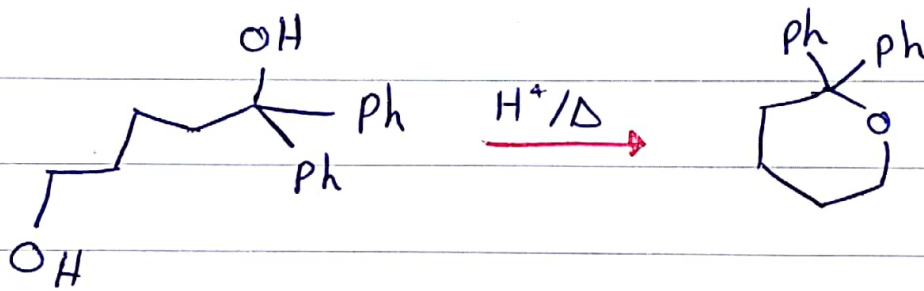 OH
Ph
Ph
OH
H⁺/Δ
Ph Ph
O